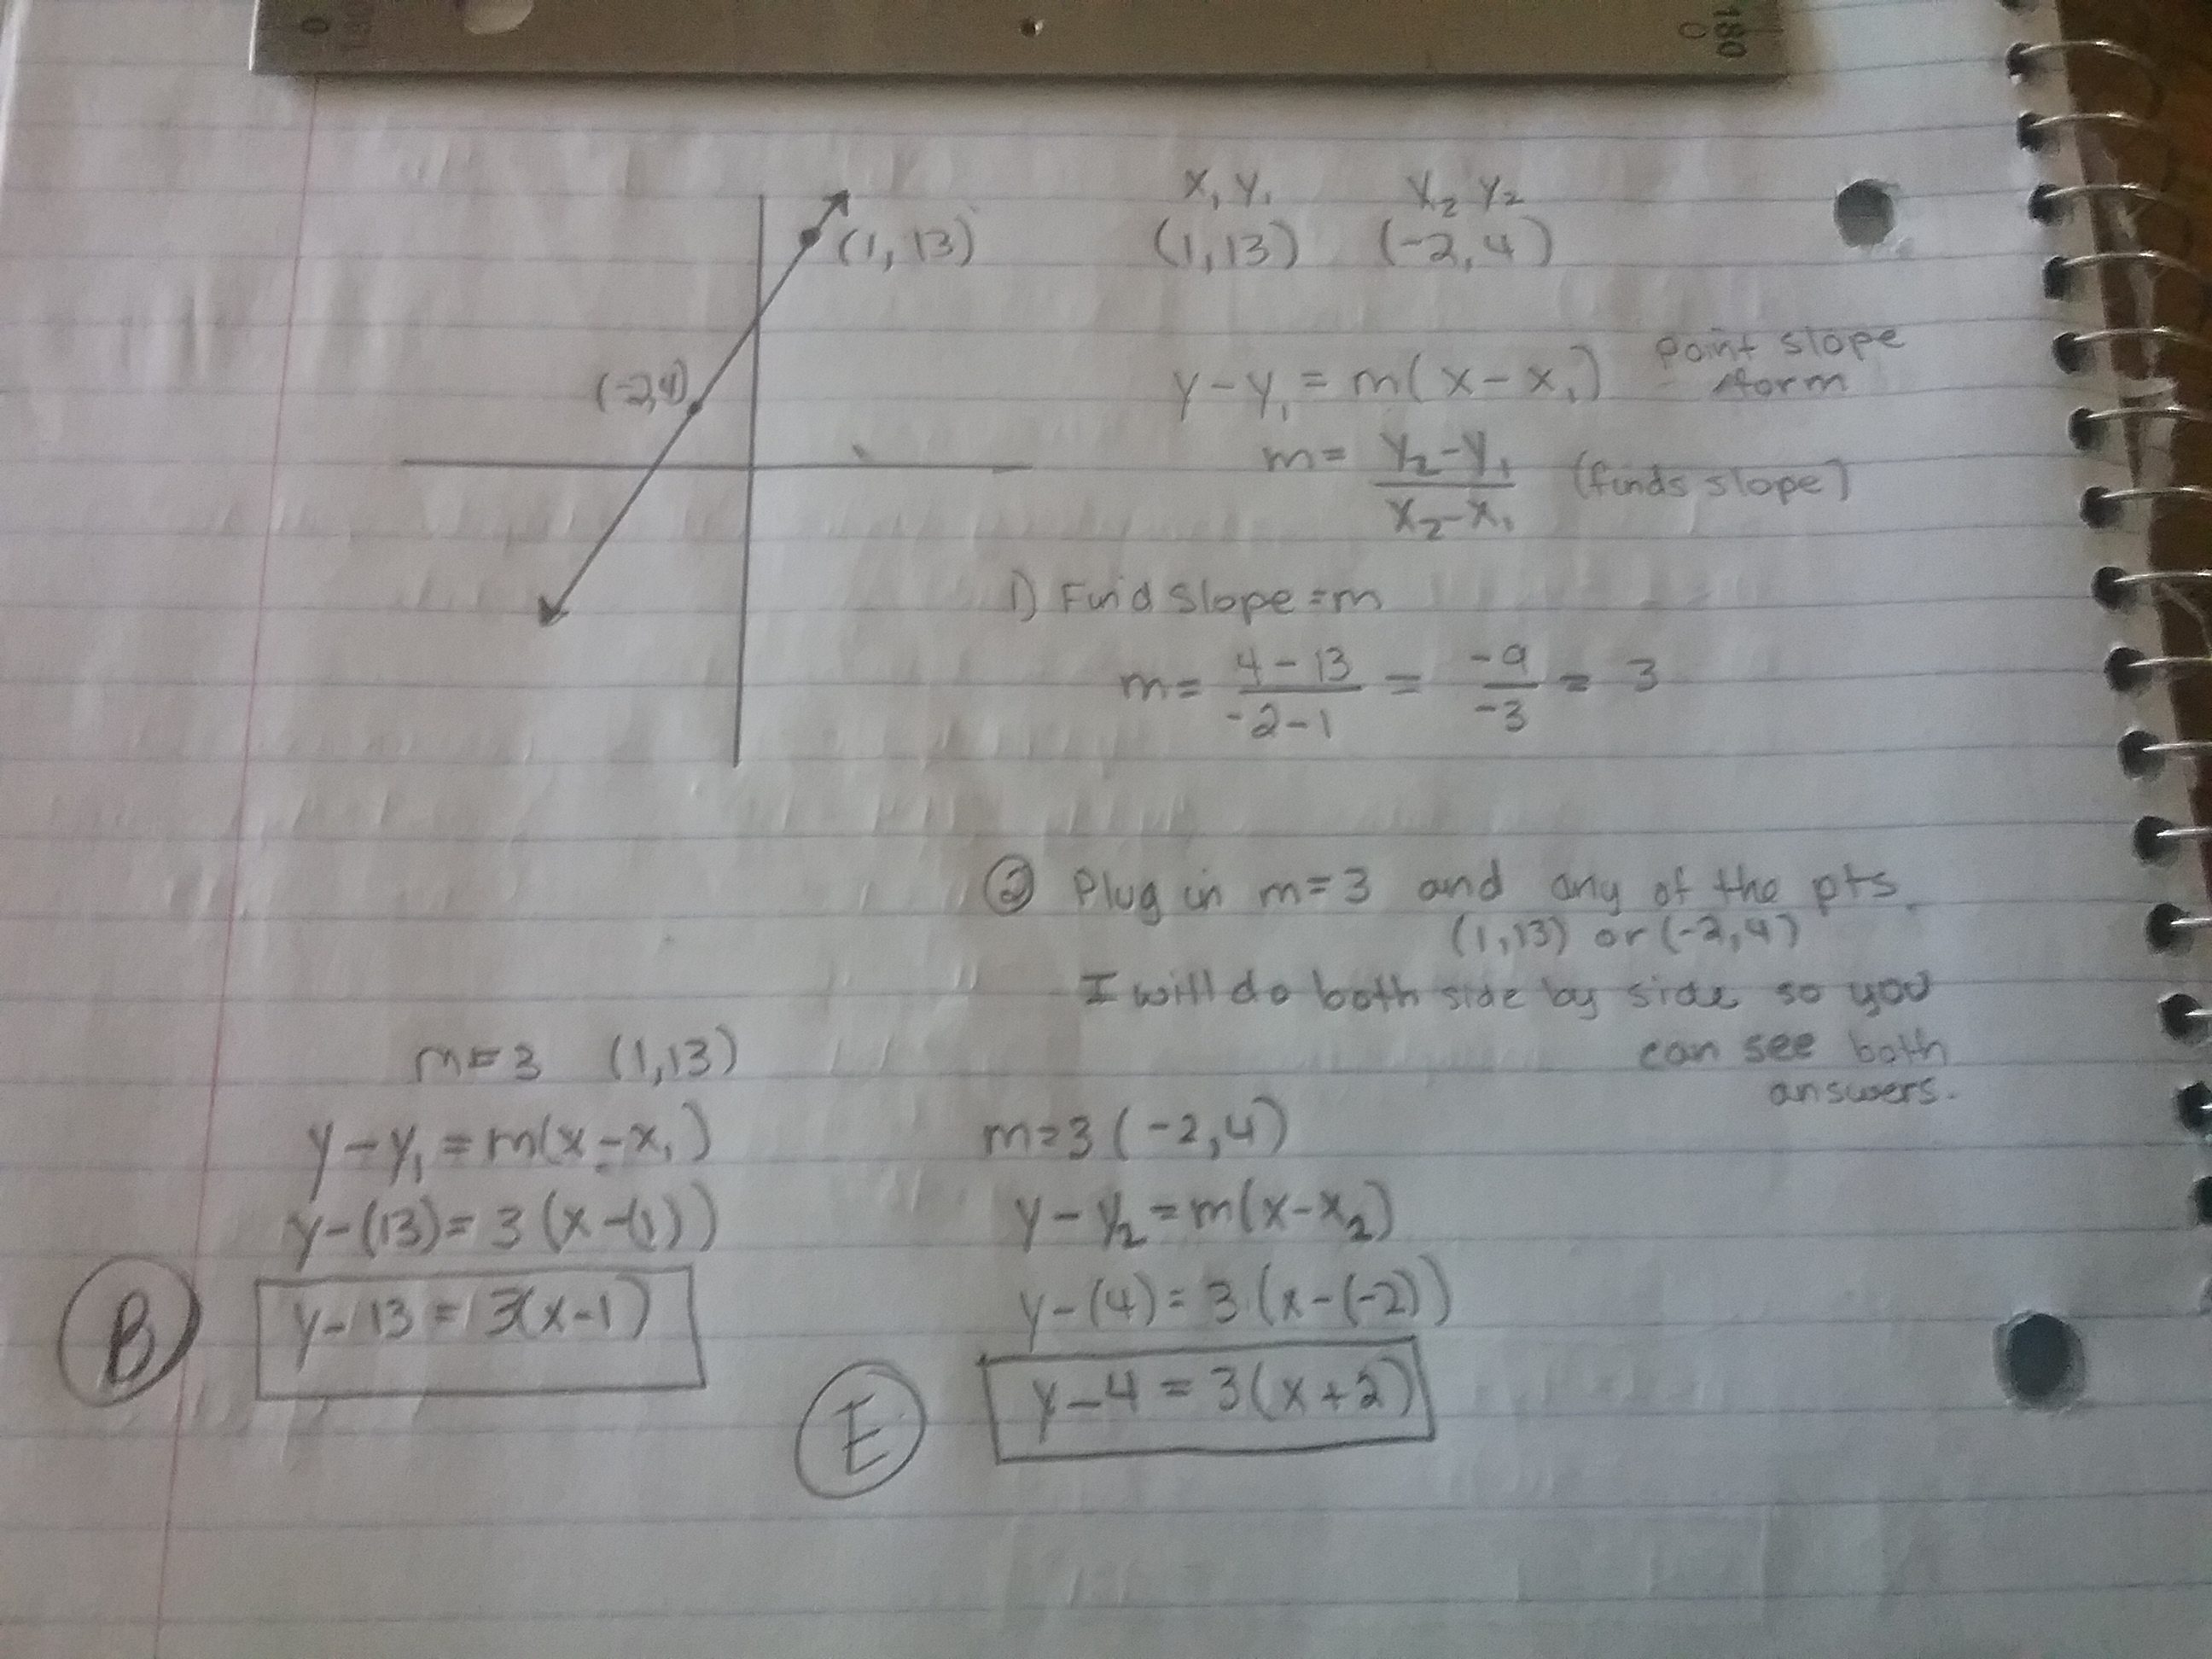 0 180
0
x₁ y₁ x₂ y₂
(1, 13) (1,13) (-2,4)
(-2,4)
y-y₁ = m(x-x₁) point slope form
m = (y₂-y₁)/(x₂-x₁) (finds slope)
1) Find slope = m
m = (4-13)/(-2-1) = -9/-3 = 3
② Plug in m=3 and any of the pts.
(1,13) or (-2,4)
I will do both side by side so you
can see both
answers.
m=3 (1,13)
y-y₁ = m(x-x₁)
y-(13) = 3(x-(1))
B y-13 = 3(x-1)
m=3 (-2,4)
y-y₂ = m(x-x₂)
y-(4) = 3(x-(-2))
E y-4 = 3(x+2)